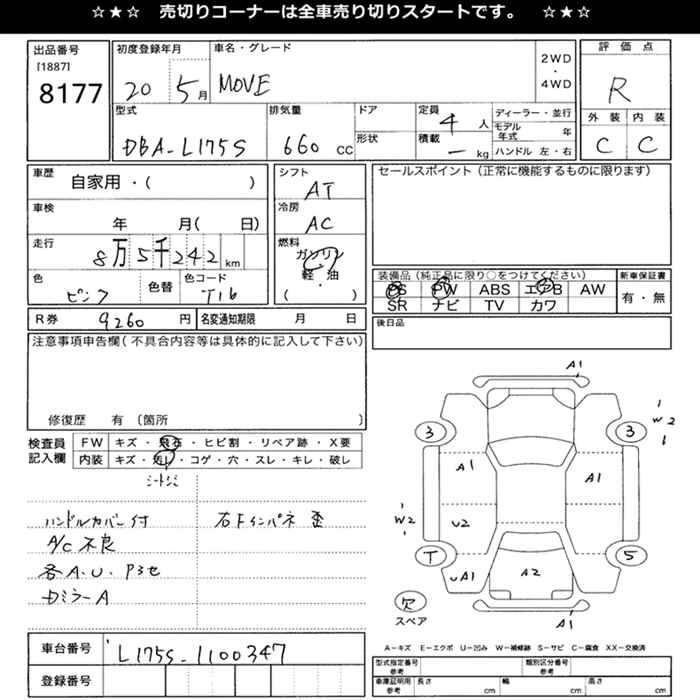 ☆★☆ 売切りコーナーは全車売り切りスタートです。 ☆★☆
出品番号
[1887]
8177
初度登録年月
20 5月
車名・グレード
MOVE
2WD
・
4WD
評価点
R
外装 内装
C C
型式
DBA-L175S
排気量
660 CC
ドア
形状
定員
4人
積載
- kg
ディーラー・並行
モデル年式 年
ハンドル 左・右
車歴
自家用・( )
車検
年 月( 日)
走行
8万5千242km
色
ピンク
色替
色コード
T16
シフト
AT
冷房
AC
燃料
ガソリン
・
軽・油
( )
セールスポイント(正常に機能するものに限ります)
装備品(純正品に限り○をつけてください)
PS PW ABS エアB AW
SR ナビ TV カワ
新車保証書
有・無
R券 9260円
名変通知期限 月 日
後日品
注意事項申告欄(不具合内容等は具体的に記入して下さい)
修復歴 有〔箇所 〕
検査員記入欄
FW キズ・飛石・ヒビ割・リペア跡・X要
内装 キズ・汚レ・コゲ・穴・スレ・キレ・破レ
シートシミ
ハンドルカバー付
右Fインパネ歪
A/C不良
各A.U.
ミラーA
A1
3
3
W2
A1
A1
W2
U2
T
5
UA1
A2
欠
スペア
A1
A-キズ E-エクボ U-凹み W-補修跡 S-サビ C-腐食 XX-交換済
車台番号
L175S-1100347
登録番号
型式指定番号
参考
類別区分番号
参考
車庫証明用
参考
長さ cm
幅 cm
高さ cm